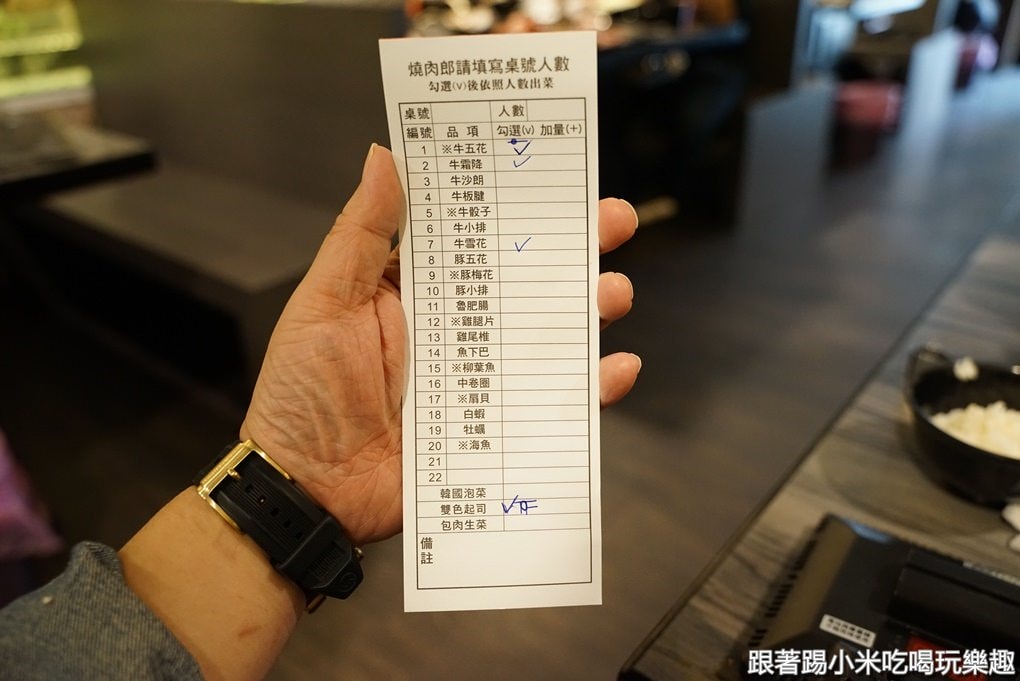 燒肉郎請填寫桌號人數
勾選(v)後依照人數出菜
桌號 人數
編號 品項 勾選(v) 加量(+)
1 ※牛五花 ✓
2 牛霜降 ✓
3 牛沙朗
4 牛板腱
5 ※牛骰子
6 牛小排
7 牛雪花 ✓
8 豚五花
9 ※豚梅花
10 豚小排
11 魯肥腸
12 ※雞腿片
13 雞尾椎
14 魚下巴
15 ※柳葉魚
16 中卷圈
17 ※扇貝
18 白蝦
19 牡蠣
20 ※海魚
21
22
韓國泡菜
雙色起司 ✓
包肉生菜
備註
跟著踢小米吃喝玩樂趣